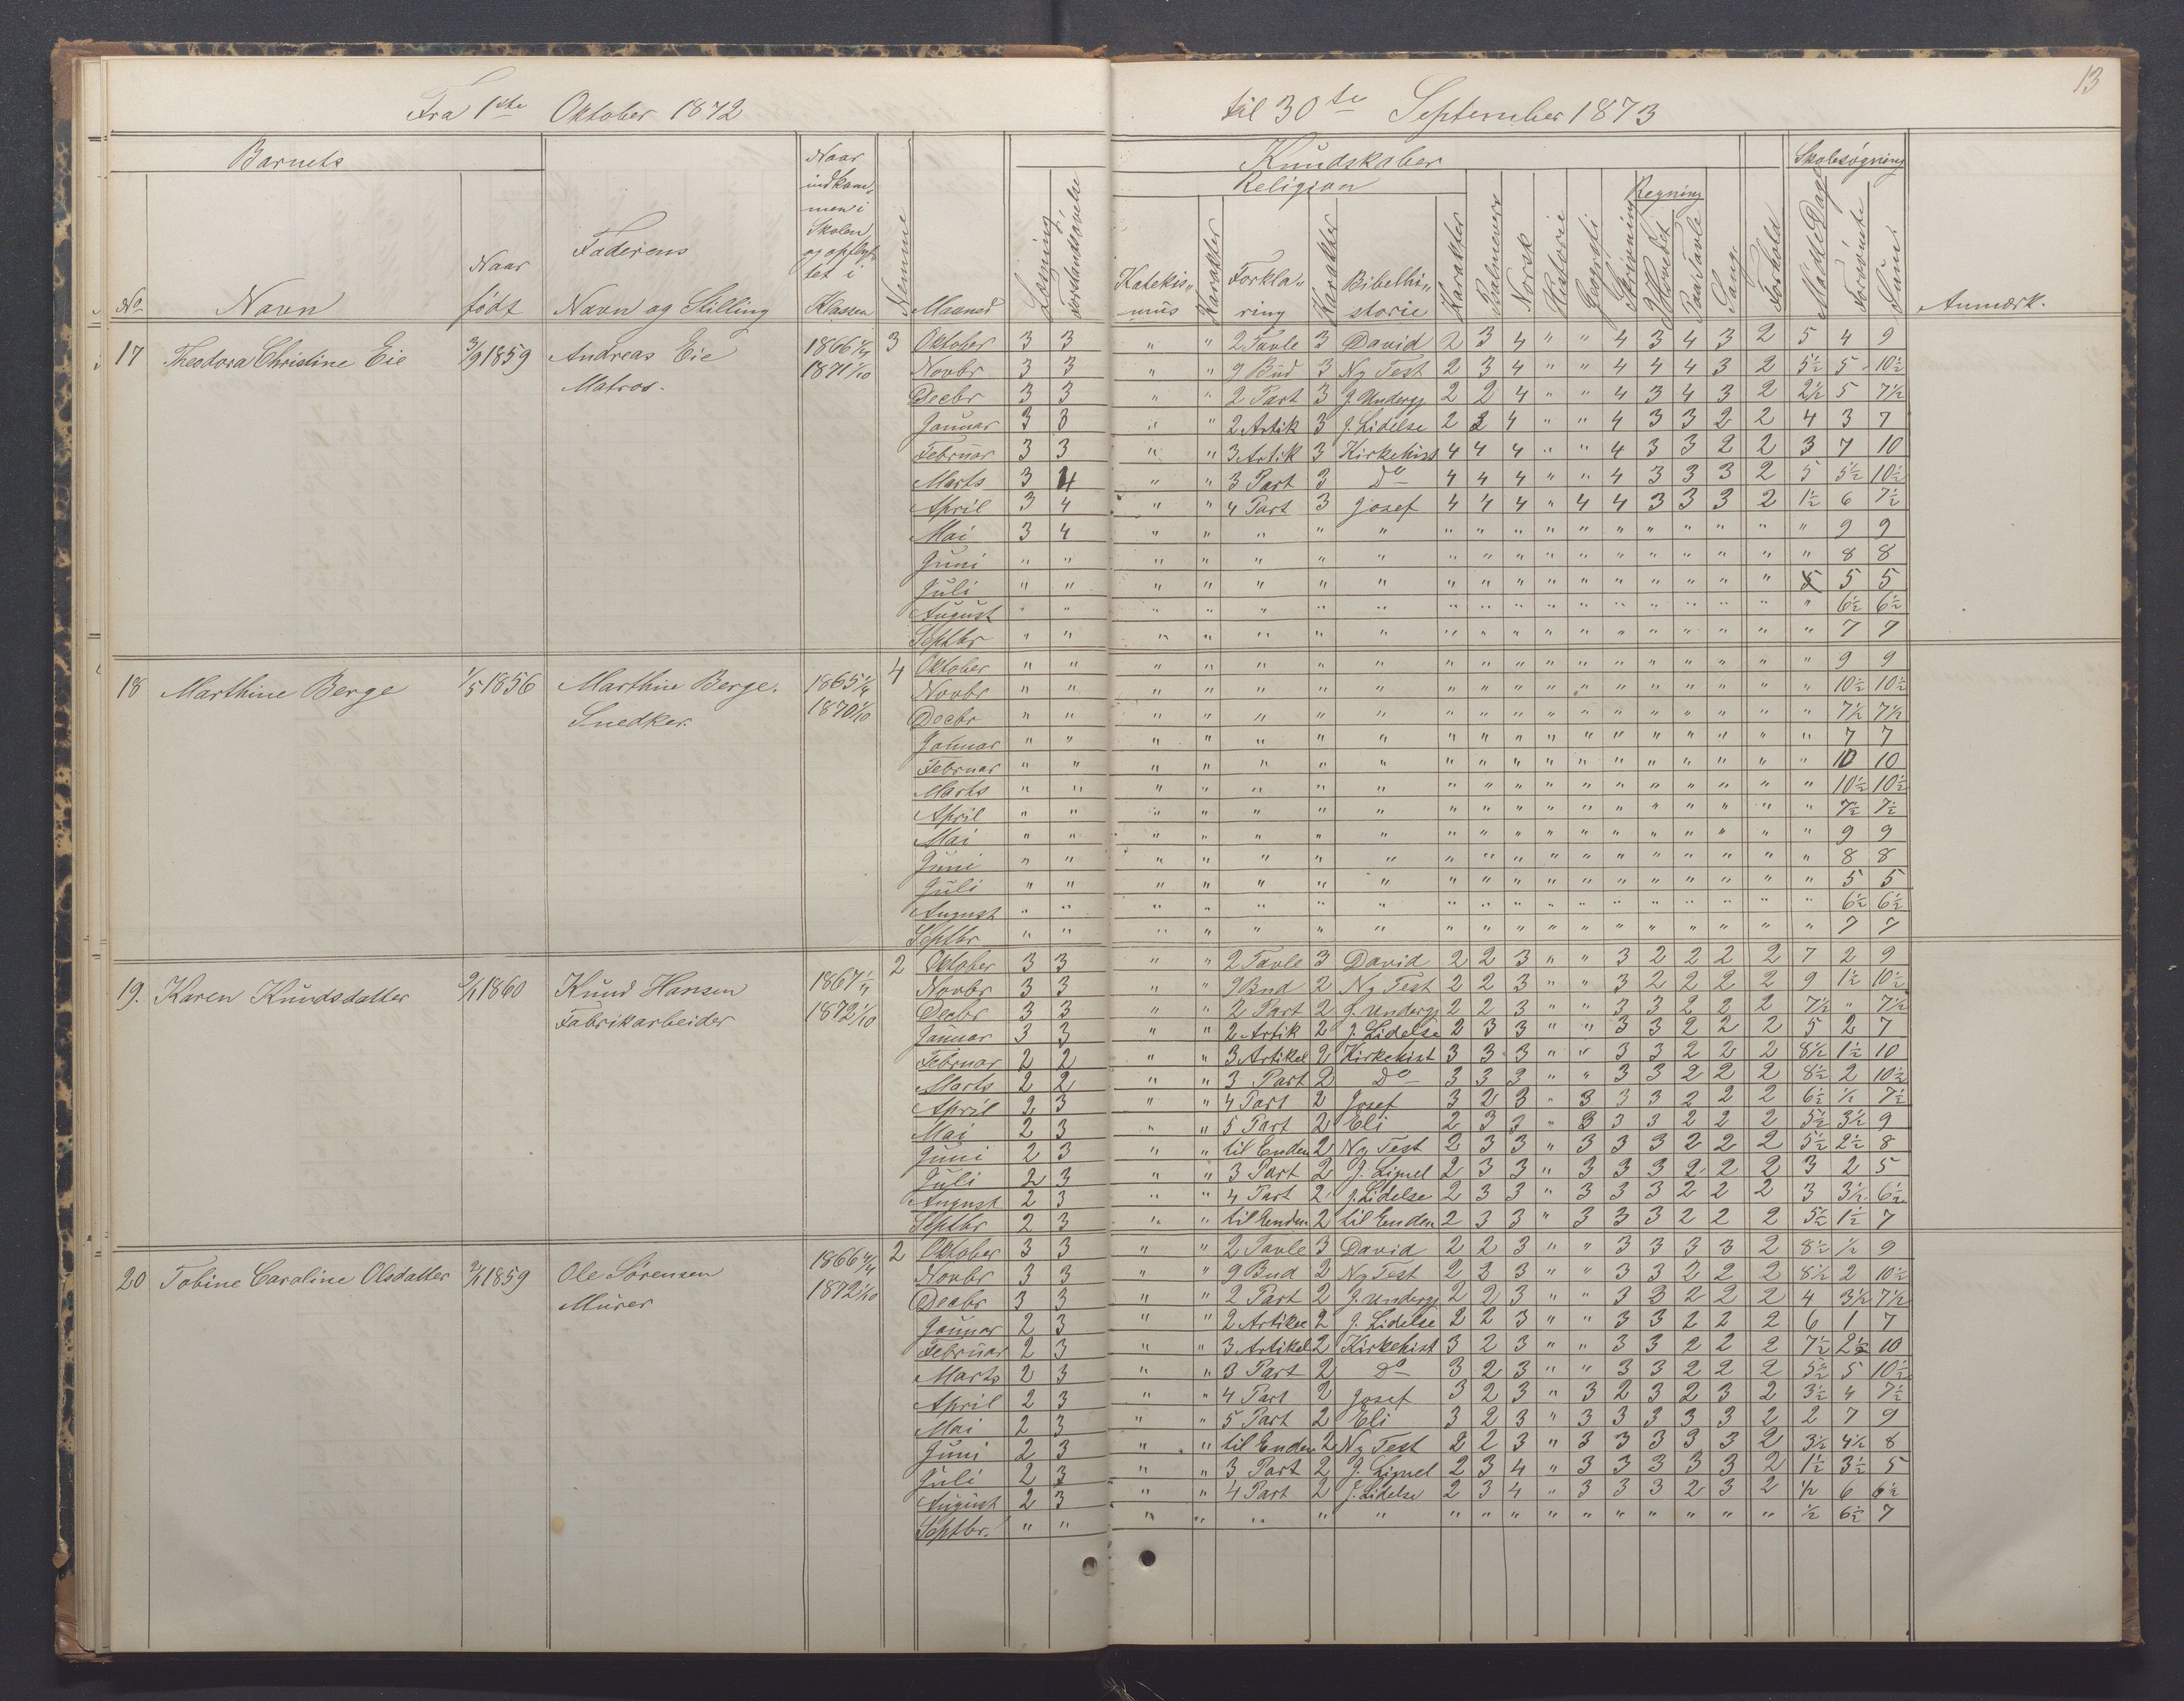 13
Fra 1ste Oktober 1872 til 30te September 1873
Barnets Kundskaber Skolesøgning
Religion Regning
No Navn Naar født Faderens Navn og Stilling Naar indkommen i Skolen og opflyttet i Klassen Nemme Maaned Læsning Forstandsøvelse Katekis„mus Karakter Forkla„ring Karakter Bibelhi„storie Karakter Psalmevers Norsk Historie Geografi Skrivning I Hovedet Paa Tavle Sang Forhold Mødte Dage Forsømte Sum Anmærk.
17 Theodora Christine Eie 3/9 1859 Andreas Eie 3 Oktober 3 3 " " 2 Tavle 3 David 2 3 4 " " 4 3 4 3 2 5 4 9
Matros. Novbr 3 3 " " 9 Bud 3 Ny Test 2 3 4 " " 4 4 4 3 2 5½ 5 10½
Decbr 3 3 " " 2 Part 3 J. Undergj 2 2 4 " " 4 3 4 3 2 2½ 5 7½
Januar 3 3 " " 2 Artik 3 J. Lidelse 2 2 4 " " 4 3 3 2 2 4 3 7
Februar 3 3 " " 3 Artik 3 Kirkehist 4 4 4 " " 4 3 3 2 2 3 7 10
Marts 3 4 " " 3 Part 3 Do 4 4 4 " " 4 3 3 3 2 5 5½ 10½
April 3 4 " " 4 Part 3 Josef 4 4 4 " 4 4 3 3 3 2 1½ 6 7½
Mai 3 4 " " " " " " " " " " " " " " " " 9 9
Juni " " " " " " " " " " " " " " " " " " 8 8
Juli " " " " " " " " " " " " " " " " " 5 5 5
August " " " " " " " " " " " " " " " " " " 6½ 6½
Septbr " " " " " " " " " " " " " " " " " " 7 7
18 Marthine Berge 1/5 1856 Marthin Berge. 1865 4 Oktober " " " " " " " " " " " " " " " " " " 9 9
Snedker. 1870 1/10 Novbr " " " " " " " " " " " " " " " " " " 10½ 10½
Decbr " " " " " " " " " " " " " " " " " " 7½ 7½
Januar " " " " " " " " " " " " " " " " " " 7 7
Februar " " " " " " " " " " " " " " " " " " 10 10
Marts " " " " " " " " " " " " " " " " " " 10½ 10½
April " " " " " " " " " " " " " " " " " " 7½ 7½
Mai " " " " " " " " " " " " " " " " " " 9 9
Juni " " " " " " " " " " " " " " " " " " 8 8
Juli " " " " " " " " " " " " " " " " " " 5 5
August " " " " " " " " " " " " " " " " " " 6½ 6½
Septbr " " " " " " " " " " " " " " " " " " 7 7
19. Karen Knudsdatter 1860 Knud Hansen 1867 2 Oktober 3 3 " " 2 Tavle 3 David 2 2 3 " " 3 2 2 2 2 7 2 9
Fabrikarbeider 1872 1/10 Novbr 3 3 " " 9 Bud 2 Ny Test 2 2 3 " " 3 2 2 2 2 9 1½ 10½
Decbr 3 3 " " 2 Part 2 J. Undergj 2 2 3 " " 3 3 2 2 2 7½ " 7½
Januar 3 3 " " 2 Artik 2 J. Lidelse 2 3 3 " " 3 3 2 2 2 5 2 7
Februar 2 2 " " 3 Artikel 2 Kirkehist 3 3 3 " " 3 3 2 2 2 8½ 1½ 10
Marts 2 2 " " 3 Part 2 Do 3 3 3 " " 3 3 2 2 2 8½ 2 10½
April 2 3 " " 4 Part 2 Josef 3 2 3 " 3 3 3 2 2 2 6½ ½ 7½
Mai 2 3 " " 5 Part 2 Eli 2 3 3 " 3 3 3 2 2 2 5½ 3½ 9
Juni 2 3 " " til Enden 2 Ny Test 2 3 3 " 3 3 3 2 2 2 5½ 2½ 8
Juli 2 3 " " 3 Part 2 J. Limel 2 3 3 " 3 3 3 2 2 2 3 2 5
August 2 3 " " 4 Part 2 J. Lidelse 2 3 3 " 3 3 3 2 2 2 3 3½ 6½
Septbr 2 3 " " til Enden 2 til Enden 2 3 3 " 3 3 3 2 2 2 5½ 1½ 7
20 Tobine Caroline Olsdatter 1859 Ole Sørensen 1866 2 Oktober 3 3 " " 2 Tavle 3 David 2 2 3 " " 3 3 3 3 2 8½ ½ 9
Murer 1872 1/10 Novbr 3 3 " " 9 Bud 2 Ny Test 2 2 3 " " 3 3 2 2 2 8½ 2 10½
Decbr 3 3 " " 2 Part 2 J. Undergj 2 2 3 " " 3 3 2 2 2 4 3½ 7½
Januar 2 3 " " 2 Artikel 2 J. Lidelse 2 2 3 " " 3 3 2 2 2 6 1 7
Februar 2 3 " " 3 Artikel 2 Kirkehist 3 2 3 " " 3 3 2 2 2 7½ 2½ 10
Marts 2 3 " " 3 Part 2 Do 3 2 3 " " 3 3 2 2 2 5½ 5 10½
April 2 3 " " 4 Part 2 Josef 3 2 3 " 3 2 3 2 3 2 3½ 4 7½
Mai 2 3 " " 5 Part 2 Eli 3 2 3 " 3 3 3 3 3 2 2 7 9
Juni 2 3 " " til Enden 2 Ny Test 2 2 3 " 3 3 3 3 3 2 3½ 4½ 8
Juli 2 3 " " 3 Part 2 J. Limel 2 3 4 " 3 3 3 3 3 2 1½ 3½ 5
August 2 3 " " 4 Part 2 J. Lidelse 2 3 4 " 3 3 3 2 3 2 ½ 6 6½
Septbr. " " " " " " " " " " " " " " " " " ½ 6½ 7